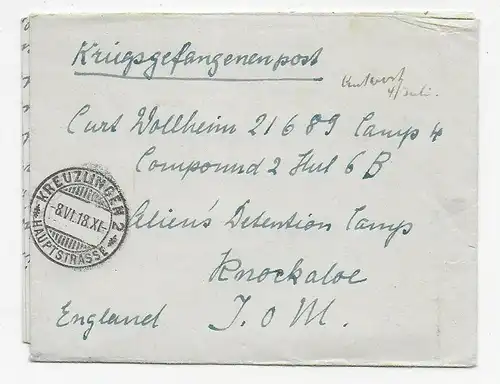 Kriegsgefangenenpost
Antwort
4/Juli.
Curt Wollheim 21689 Camp 4
Compound 2 Hut 6B
Alien's Detention Camp
Knockaloe
England I. o M.
KREUZLINGEN 2
-8.VI.18.XI-
HAUPTSTRASSE